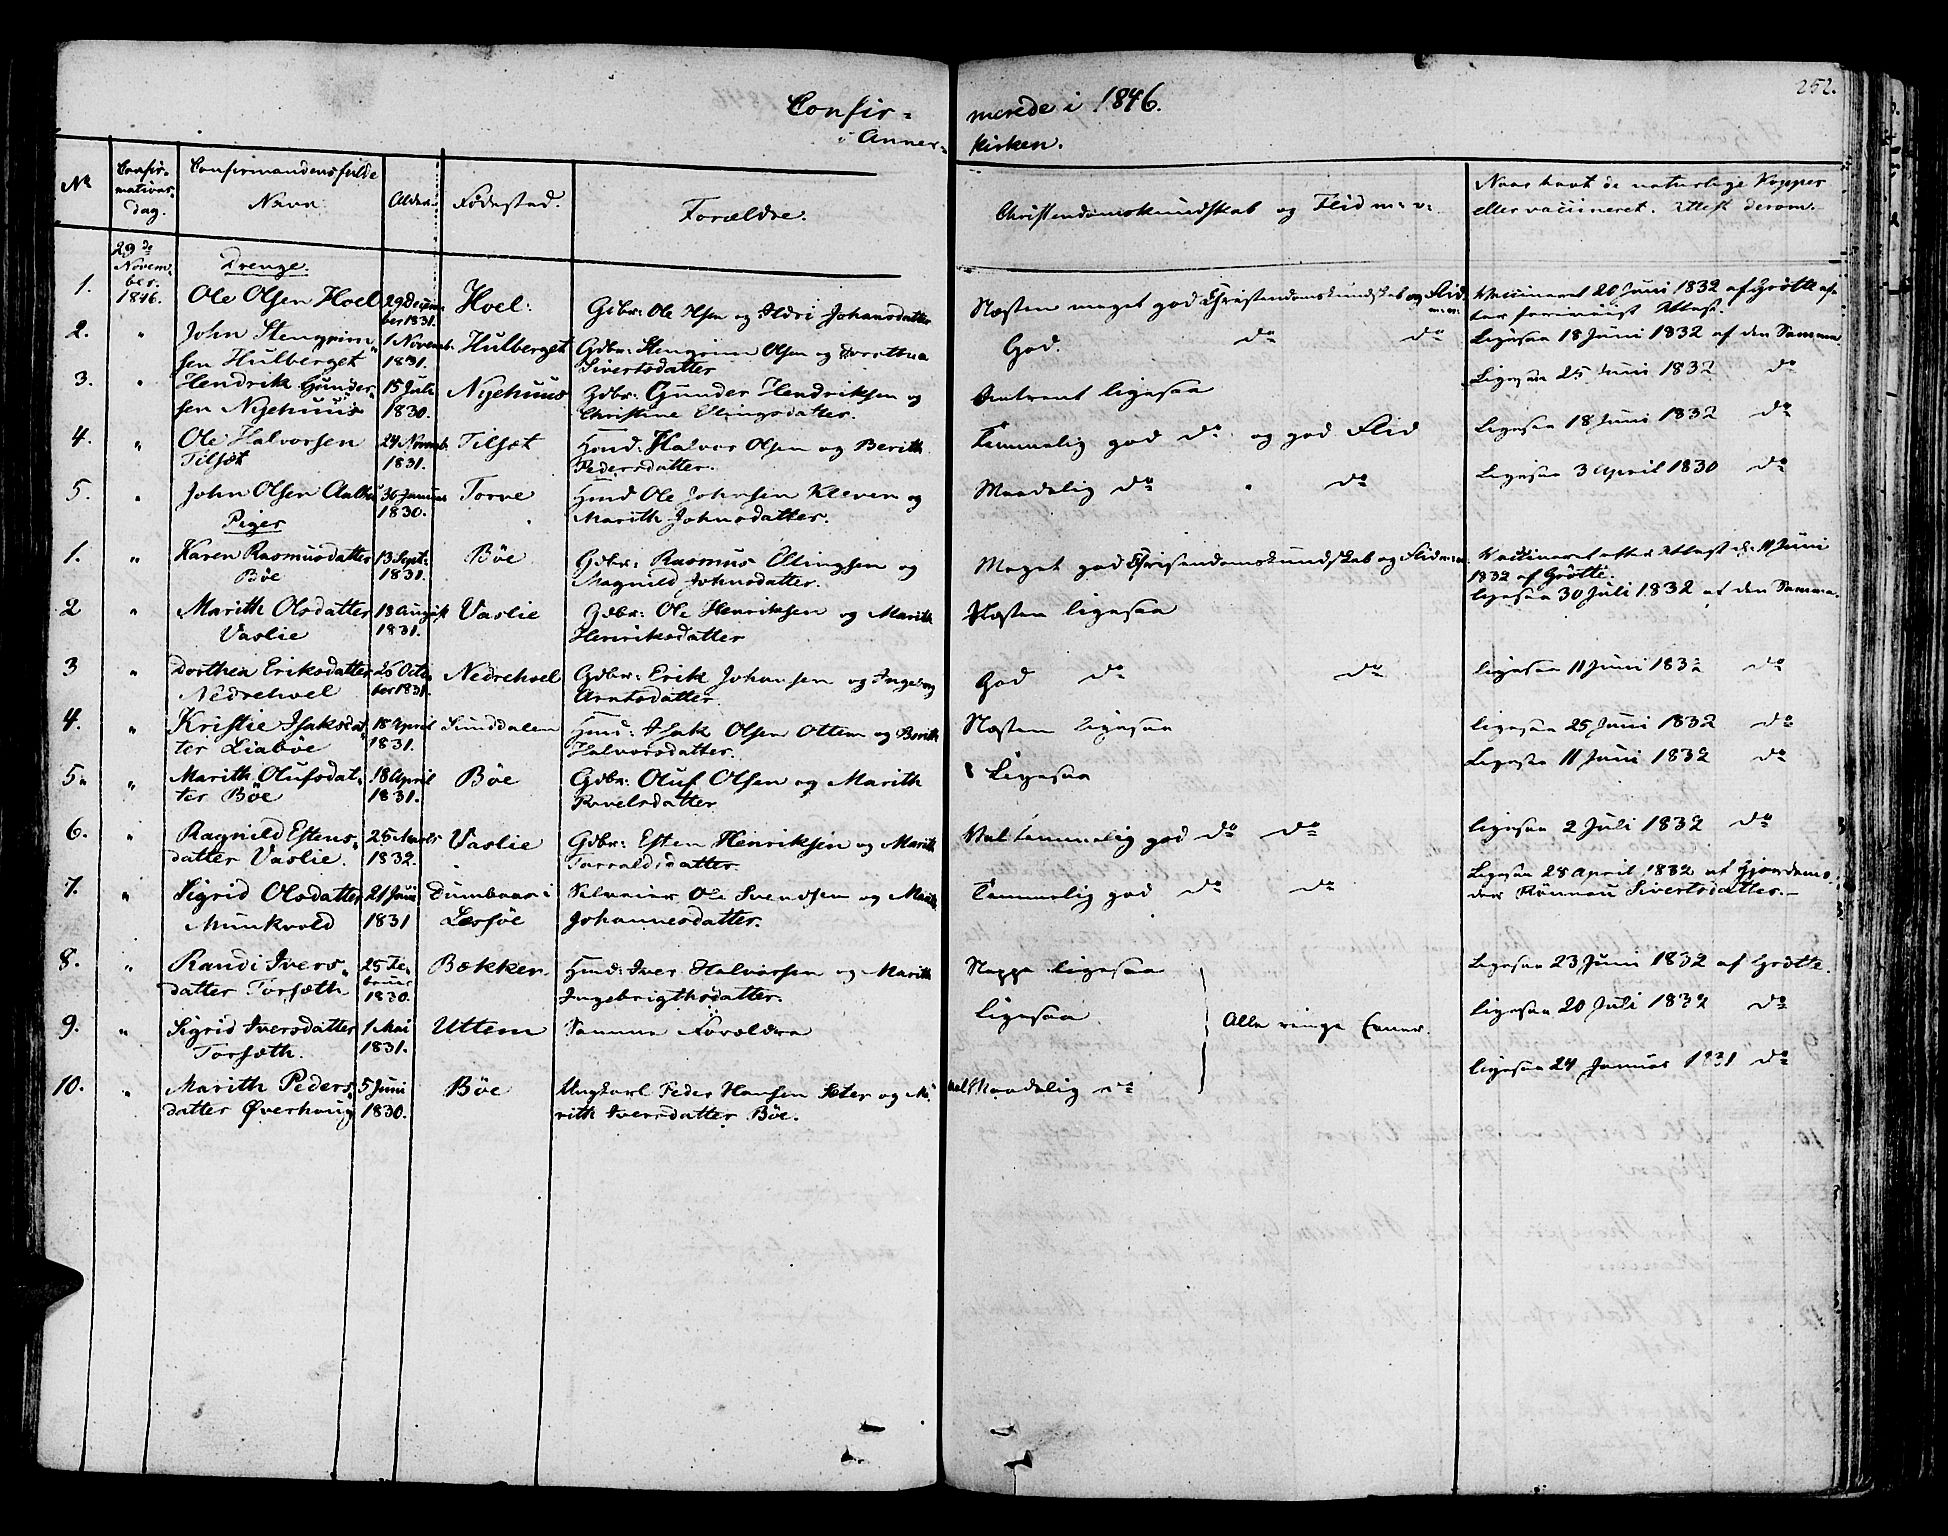 252.
Confir= merede i 1846.
i Annex= kirken.
No
Confir-
mations-
dag.
Confirmandens fulde
Navn.
Alder.
Fødested.
Forældre.
Christendomskundskab og Flid m. v.
Naar havt de naturlige Kopper
eller vaccineret. Attest derom.
29de
Novem-
ber.
1846.
Drenge.
1. Ole Olsen Hoel 29 Decem-
ber 1831. Hoel: Gdbr: Ole Olsen og Johansdatter
Næsten meget god Christendomskundskab og Flid
m. v.
Vaccineret 20 Juni 1832 af Grötte
Attest.
2. " John Stengrim-
sen Hulberget 1 Novemb.
1831. Hulberget Gdbr: Stengrim Olsen og Dorothea
Sivertsdatter
God. do do
Ligesaa 18 Juni 1832 af den Samme.
3. " Hendrik Gunder-
sen Nyehuus 15 Juli
1830. Nyehuus Gdbr: Gunder Hendriksen og
Christine Ellingsdatter.
Omtrent ligesaa
Ligesaa 25 Juni 1832 do
4. " Ole Halvorsen
Tilset 24 Novemb.
1831. Tilset Hmd: Halvor Olsen og Berith
Pedersdatter.
Temmelig god do og god Flid
Ligesaa 18 Juni 1832 do
5. " John Olsen 30 Januar
1830. Torve Hmd Ole Johnsen Kleven og
Marith Johnsdatter.
Maadelig do " do
Ligesaa 3 April 1830 do
Piger
1. " Karen Rasmusdatter
Böe 13 Sept:
1831. Böe Gdbr: Rasmus Ellingsen og
Magnild Johnsdatter.
Meget god Chrisendomskundskab og Flid m. v.
Vaccineret efter Attest 11 Juni
1832 af Grötte.
2 " Marith Olsdatter
Vaslie 18 August
1831. Vaslie Gdbr: Ole Henriksen og Marith
Henriksdatter
Næsten ligesaa
ligesaa 30 Juli 1832 af den Samme.
3 " Dorthea Eriksdatter
Nedrehoel 26 Octo-
ber 1831. Nedrehoel Gdbr: Erik Johansen og Ingebor
Arntsdatter.
God do do
ligesaa 11 Juni 1832 do
4. " Kristie Isaksdat-
ter Liaböe 18 April
1831. Sunddalen Hmd: Isak Olsen Ottem og Berith
Halvorsdatter.
Næsten ligesaa
ligesaa 25 Juni 1832 do
5. " Marith Olufsdat-
ter Böe 18 April
1831. Böe Gdbr: Oluf Olsen og Marith
Povelsdatter
Ligesaa
Ligesaa 11 Juni 1832 do
6. " Ragnild Estens-
datter Vaslie. 25 Marts
1832. Vaslie Gdbr: Esten Henriksen og Marith
Torvaldsdatter.
Vel temmelig god do do
ligesaa 2 Juli 1832 do
7. " Sigrid Olsdatter
Munkvold 21 Juni
1831 Dumbaas i
Lessöe Selveier Ole Svendsen og Marith
Johannesdatter.
Temmelig god do do
Ligesaa 28 April 1832 af Gjordemo-
der Rönnau Sivertsdatter.
8. " Randi Ivers-
datter Torsæth 25 Fe-
bruar
1830. Bækken Hmd: Iver Halvorsen og Marith
Ingebrigthsdatter.
Neppe ligesaa
Ligesaa 23 Juni 1832 af Grötte.
9. " Sigrid Iversdatter
Torsæth. 1 Mai
1831. Uttem Samme Forældre
Ligesaa
Alle ringe Evner.
ligesaa 20 Juli 1832 do
10. " Marith Peders-
datter Øverhaug 5 Juni
1830. Böe Ungkarl Peder Hansen Seter og Ma-
rith Iversdatter Böe.
vel Maadelig do
ligesaa 24 Januar 1831 do